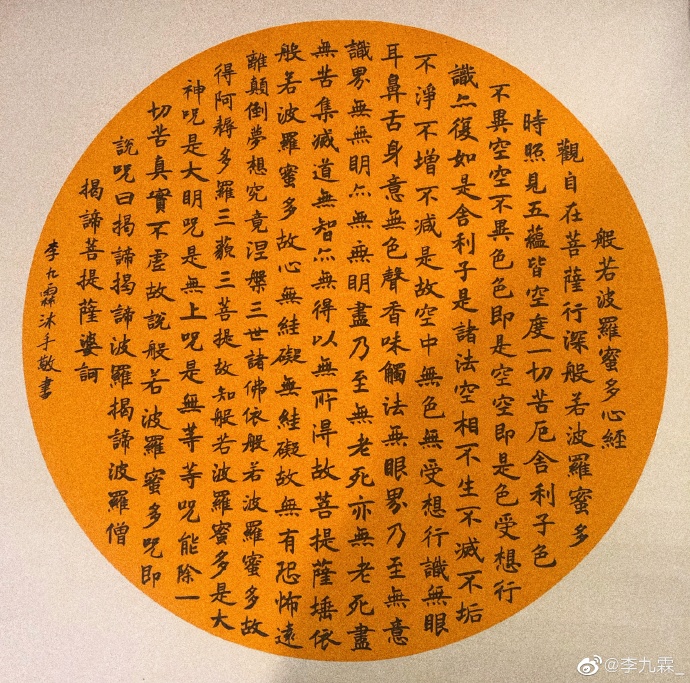 般若波羅蜜多心經
觀自在菩薩行深般若波羅蜜多
時照見五蘊皆空度一切苦厄舍利子色
不異空空不異色色即是空空即是色受想行
識亦復如是舍利子是諸法空相不生不滅不垢
不淨不增不減是故空中無色無受想行識無眼
耳鼻舌身意無色聲香味觸法無眼界乃至無意
識界無無明亦無無明盡乃至無老死亦無老死盡
無苦集滅道無智亦無得以無所得故菩提薩埵依
般若波羅蜜多故心無絓礙無絓礙故無有恐怖遠
離顛倒夢想究竟涅槃三世諸佛依般若波羅蜜多故
得阿耨多羅三藐三菩提故知般若波羅蜜多是大
神呪是大明呪是無上呪是無等等呪能除一
切苦真實不虛故說般若波羅蜜多呪即
說呪曰揭諦揭諦波羅揭諦波羅僧
揭諦菩提薩婆訶
李九霖沐手敬書
@李九霖_